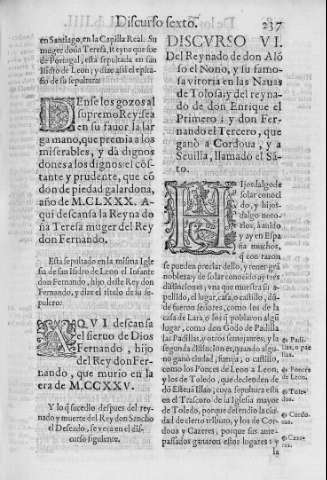 Discurso sexto. 237
en Santiago, en la Capilla Real. Su
muger doña Teresa, Reyna que fue
de Portugal, està sepultada en san
Isidro de Leon; y dize assi el epita-
fio de su sepultura
DEnse los gozos al
supremo Rey: sea
en su fauor la lar
ga mano, que premia a los
miserables, y dà dignos
dones a los dignos: el cõs-
tante y prudente, que cõ
don de piedad galardona,
año de M.CLXXX. A-
qui descansa la Reyna do
ña Teresa muger del Rey
don Fernando.
Esta sepultado en la misma Igle
sia de san Isidro de Leon el Infante
don Fernando, hijo deste Rey don
Fernando, y dize el titulo de su se
pulcro:
AQVI descansa
el sieruo de Dios
Fernando, hijo
del Rey don Fer-
nando, que murio en la
era de M.CCXXV.
Y lo q̃ sucedio despues del rey-
nado y muerte del Rey don Sancho
el Deseado, se verà en el dis-
curso siguiente.
DISCVRSO VI.
Del Reynado de don Alõ
so el Nono, y su famo-
sa vitoria en las Nauas
de Tolosa; y del reyna-
do de don Enrique el
Primero; y don Fer-
nando el Tercero, que
ganò a Cordoua, y a
Seuilla, llamado el Sã-
to.
Hijosdalgo de
solar conoci
do, y hijos-
dalgo noto-
rios, à auido
y ay en Espa
ña muchos,
q̃ con razon
se pueden preciar dello, y tener grã
nobleza; y de solar conocido ay tres
distinciones; vna que muestra su a-
pellido, el lugar, casa, o castillo, dõ-
de fueron señores, como los de la
casa de Lara, o los q̃ poblaron algun
lugar, como don Godo de Padilla
las Padillas, y otros semejantes; y la
segunda distinciõ es, quando algu-
no ganò ciudad, familia, o castillo,
como los Ponces de Leon a Leon,
y los de Toledo, que decienden de
dõ Esteuan Illan, cuya sepultura està
en el Trascoro de la Iglesia mayor
de Toledo, porque defendio la ciu-
dad de cierto tributo, y los de Cor-
doua y Cazeres, porque sus ante-
passados ganaron estos lugares: y
la
Padi-
llas.
Ponces
de Leon.
Tole-
dos.
Cordo-
uas.
Caze-
res.